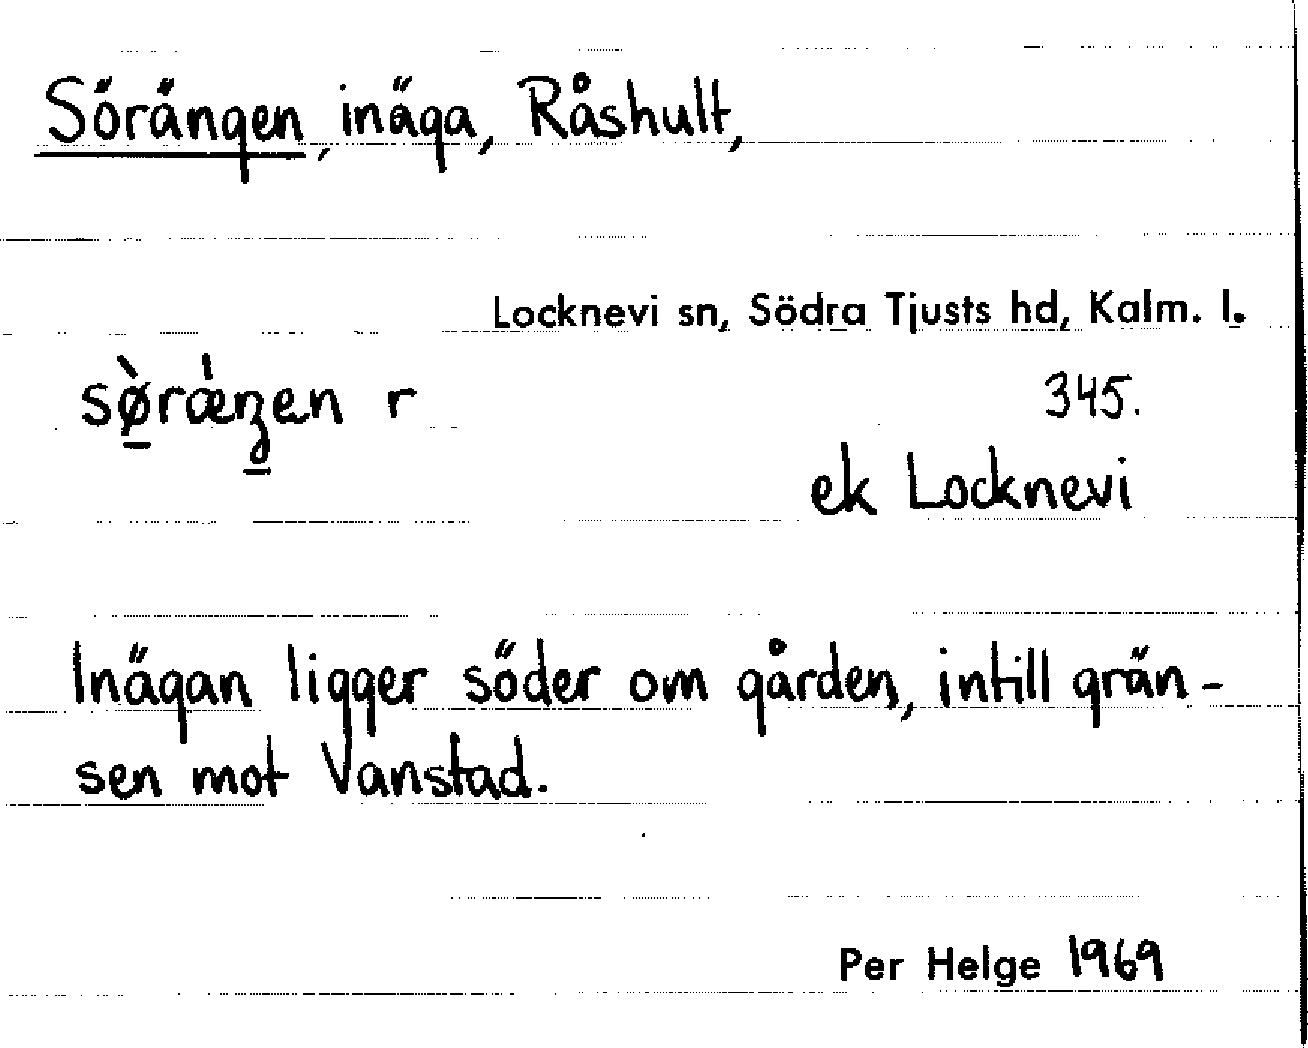 Sörängen, inäga, Råshult,
Locknevi sn, Södra Tjusts hd, Kalm. l.
sø̠̀rǽŋ̠en r
345.
ek Locknevi
Inägan ligger söder om gården, intill grän-
sen mot Vanstad.
Per Helge 1969